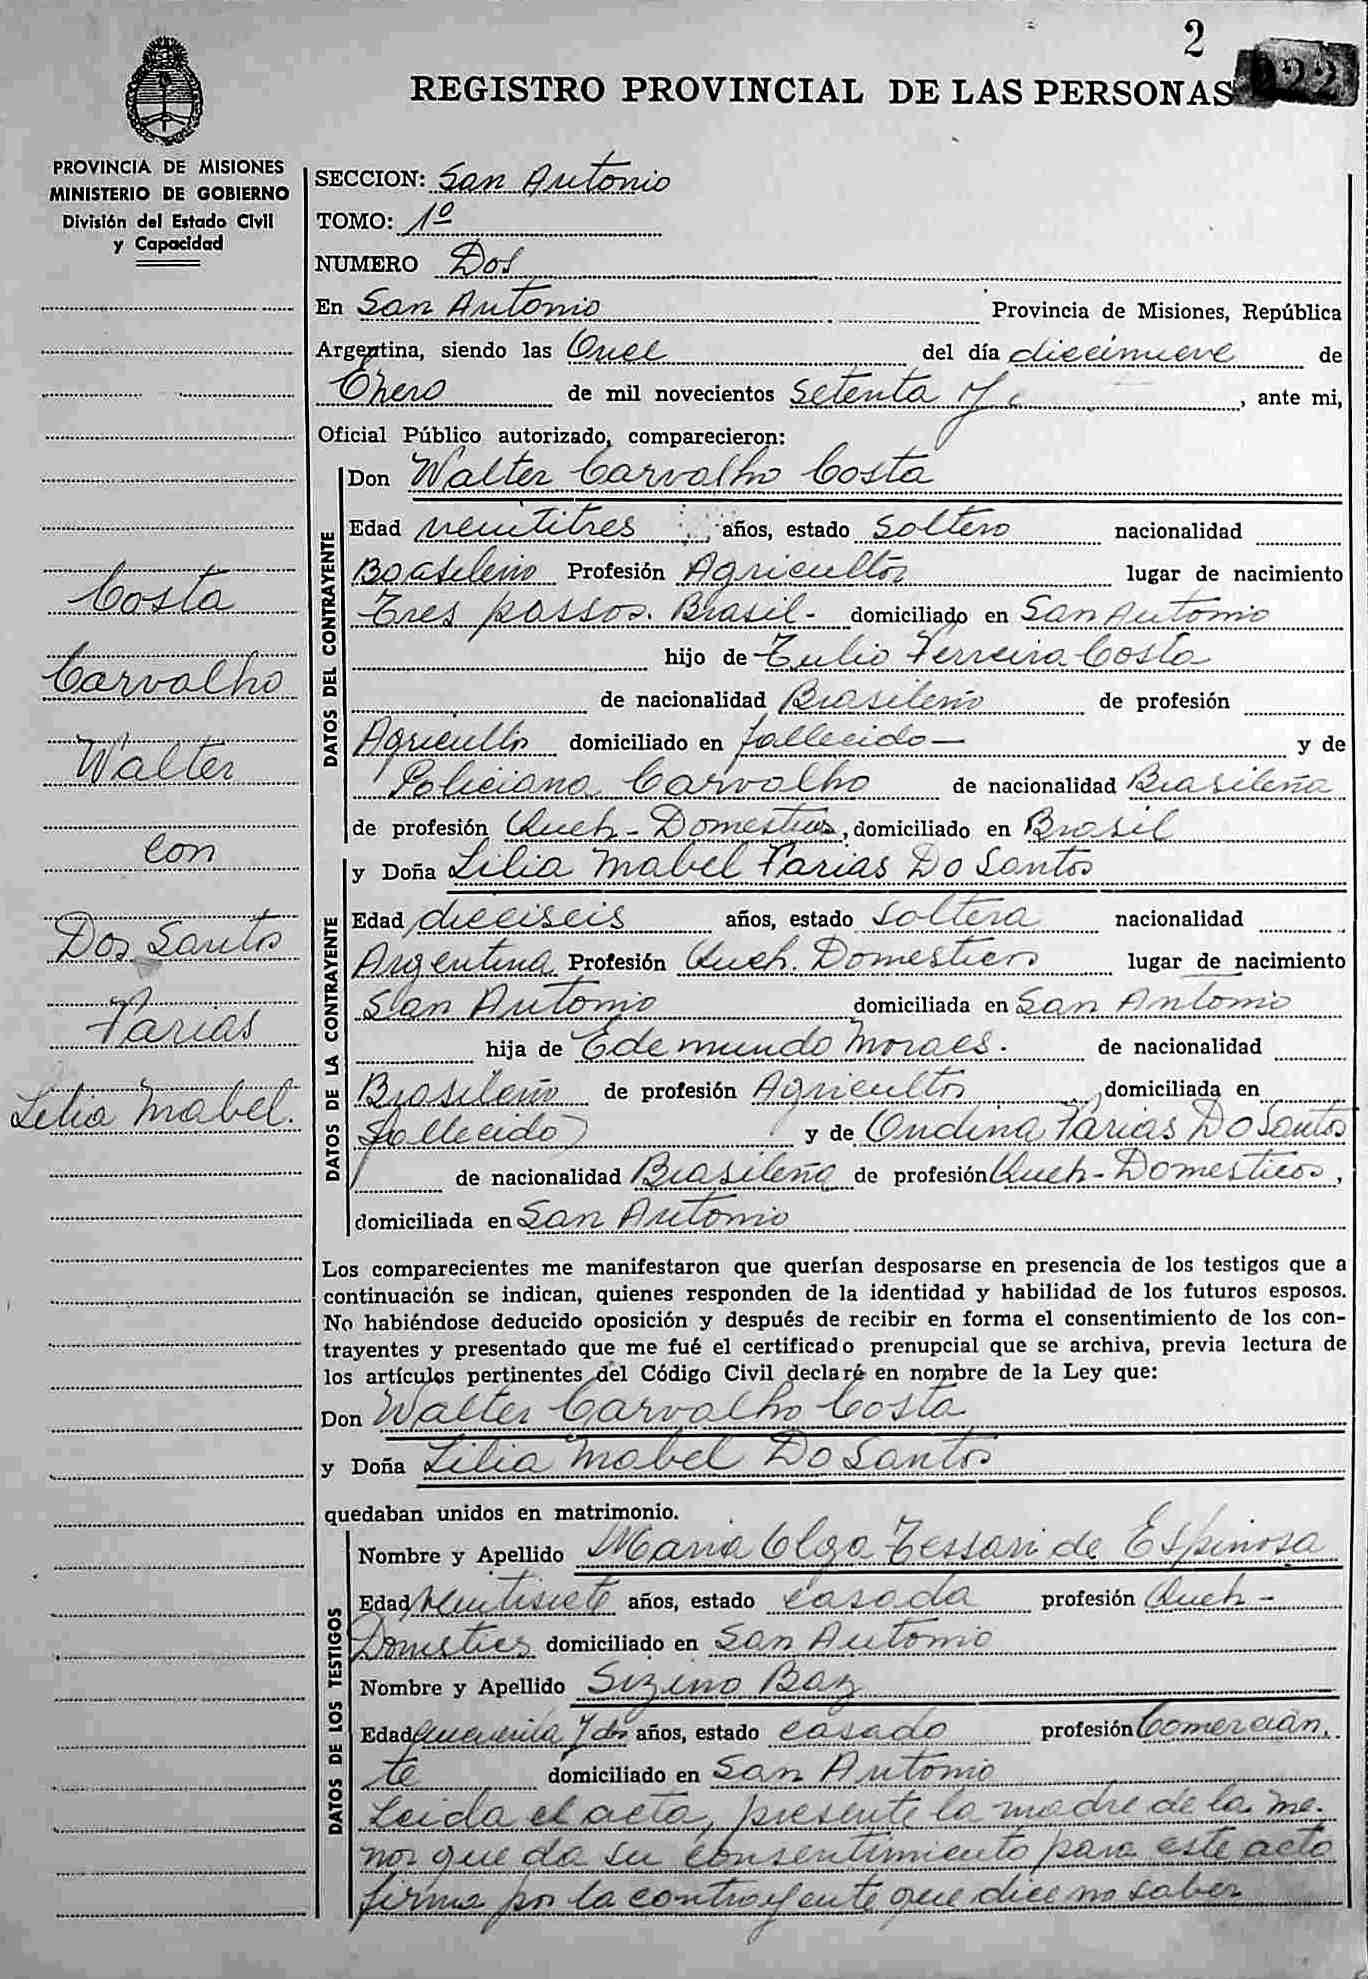 2
022
REGISTRO PROVINCIAL DE LAS PERSONAS
PROVINCIA DE MISIONES
MINISTERIO DE GOBIERNO
División del Estado Civil
y Capacidad
Costa
Carvalho
Walter
con
Dos Santos
Farias
Lilia Mabel.
SECCION: San Antonio
TOMO: 1º
NUMERO Dos
En San Antonio Provincia de Misiones, República
Argentina, siendo las Once del día diecinueve de
Enero de mil novecientos Setenta y , ante mi,
Oficial Público autorizado, comparecieron:
DATOS DEL CONTRAYENTE
Don Walter Carvalho Costa
Edad veintitres años, estado Soltero nacionalidad
Brasileño Profesión Agricultor lugar de nacimiento
Tres passos. Brasil- domiciliado en San Antonio
hijo de Tulio Ferreira Costa
de nacionalidad Brasileño de profesión
Agricultor domiciliado en fallecido- y de
Policiana Carvalho de nacionalidad Brasileña
de profesión Queh-Domesticos, domiciliado en Brasil
DATOS DE LA CONTRAYENTE
y Doña Lilia Mabel Farias Do Santos
Edad dieciseis años, estado Soltera nacionalidad
Argentina Profesión Queh. Domesticos lugar de nacimiento
San Antonio domiciliada en San Antonio
hija de Edemundo Moraes. de nacionalidad
Brasileño de profesión Agricultor domiciliada en
fallecido y de Ondina Farias Do Santos
de nacionalidad Brasileña de profesión Queh-Domesticos,
domiciliada en San Antonio
Los comparecientes me manifestaron que querían desposarse en presencia de los testigos que a
continuación se indican, quienes responden de la identidad y habilidad de los futuros esposos.
No habiéndose deducido oposición y después de recibir en forma el consentimiento de los con-
trayentes y presentado que me fué el certificado prenupcial que se archiva, previa lectura de
los artículos pertinentes del Código Civil declaré en nombre de la Ley que:
Don Walter Carvalho Costa
y Doña Lilia Mabel Do Santos
quedaban unidos en matrimonio.
DATOS DE LOS TESTIGOS
Nombre y Apellido Maria Olga Tessari de Espinosa
Edad veintisiete años, estado casada profesión Queh-
Domesticos domiciliado en San Antonio
Nombre y Apellido Sizino Baz
Edad cuarenta y dos años, estado casado profesión Comercian.
te domiciliado en San Antonio
Leida el acta, presente la madre de la me-
nor que da su consentimiento para este acto
firma por la contrayente que dice no saber